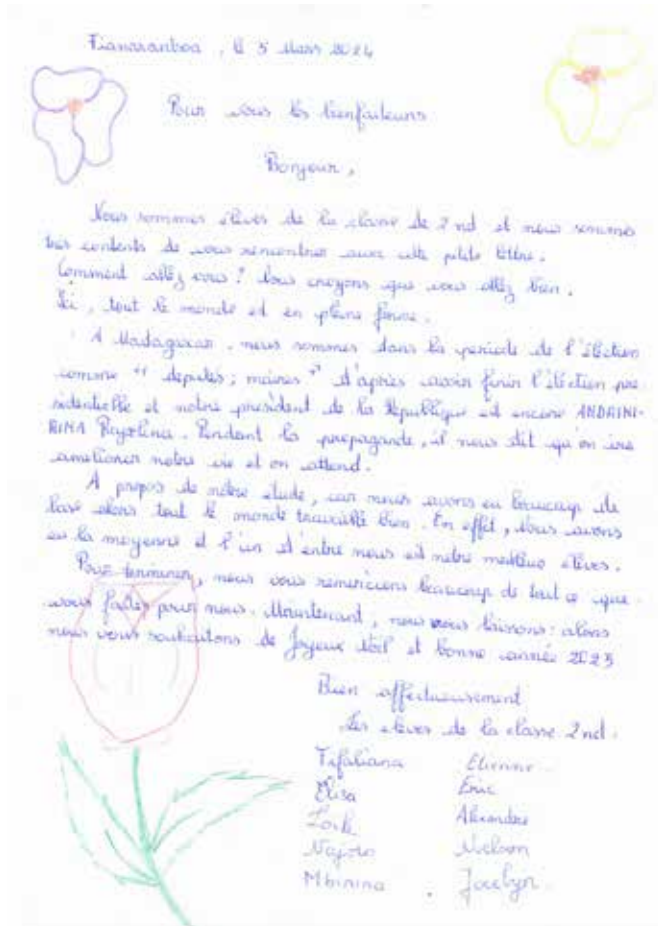 Fianarantsoa, le 5 Mars 2024
Pour vous les bienfaiteurs
Bonjour,
Nous sommes élèves de la classe de 2nd et nous sommes
très contents de vous rencontrer avec cette petite lettre.
Comment allez vous? Nous croyons que vous allez bien.
Ici, tout le monde est en pleine forme.
A Madagascar, nous sommes dans la periode de l'élection
comme " députés; maires " d'après avoir finir l'élection pré
sidentielle et notre président de la République est encore ANDRINI-
RINA Rajoelina. Pendant la propagande, il nous dit qu'on ira
ameliorer notre vie et on attend.
A propos de notre étude, car nous avons eu beaucoup de
base alors tout le monde travaille bien. En effet, Nous avons
eu la moyenne et l'un d'entre nous est notre meilleur élèves.
Pour terminer, nous vous remercions beaucoup de tout ce que
vous faites pour nous. Maintenant, nous vous laissons: alors
nous vous souhaitons de Joyeux Noël et bonne année 2025
Bien affectueusement
Les élèves de la classe 2nd.
Tifaliana Etienne
Elisa Eric
Alexandre
Najoro Nelson
Mbinina Jocelyn